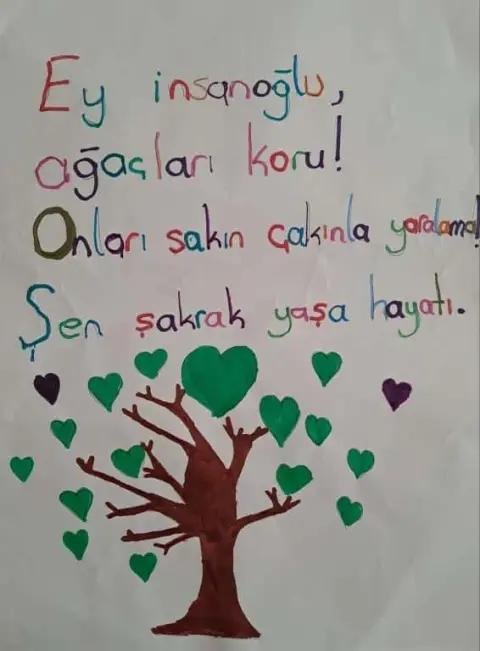 Ey insanoğlu,
ağaçları koru!
Onları sakın çakınla yaralama!
Şen şakrak yaşa hayatı.